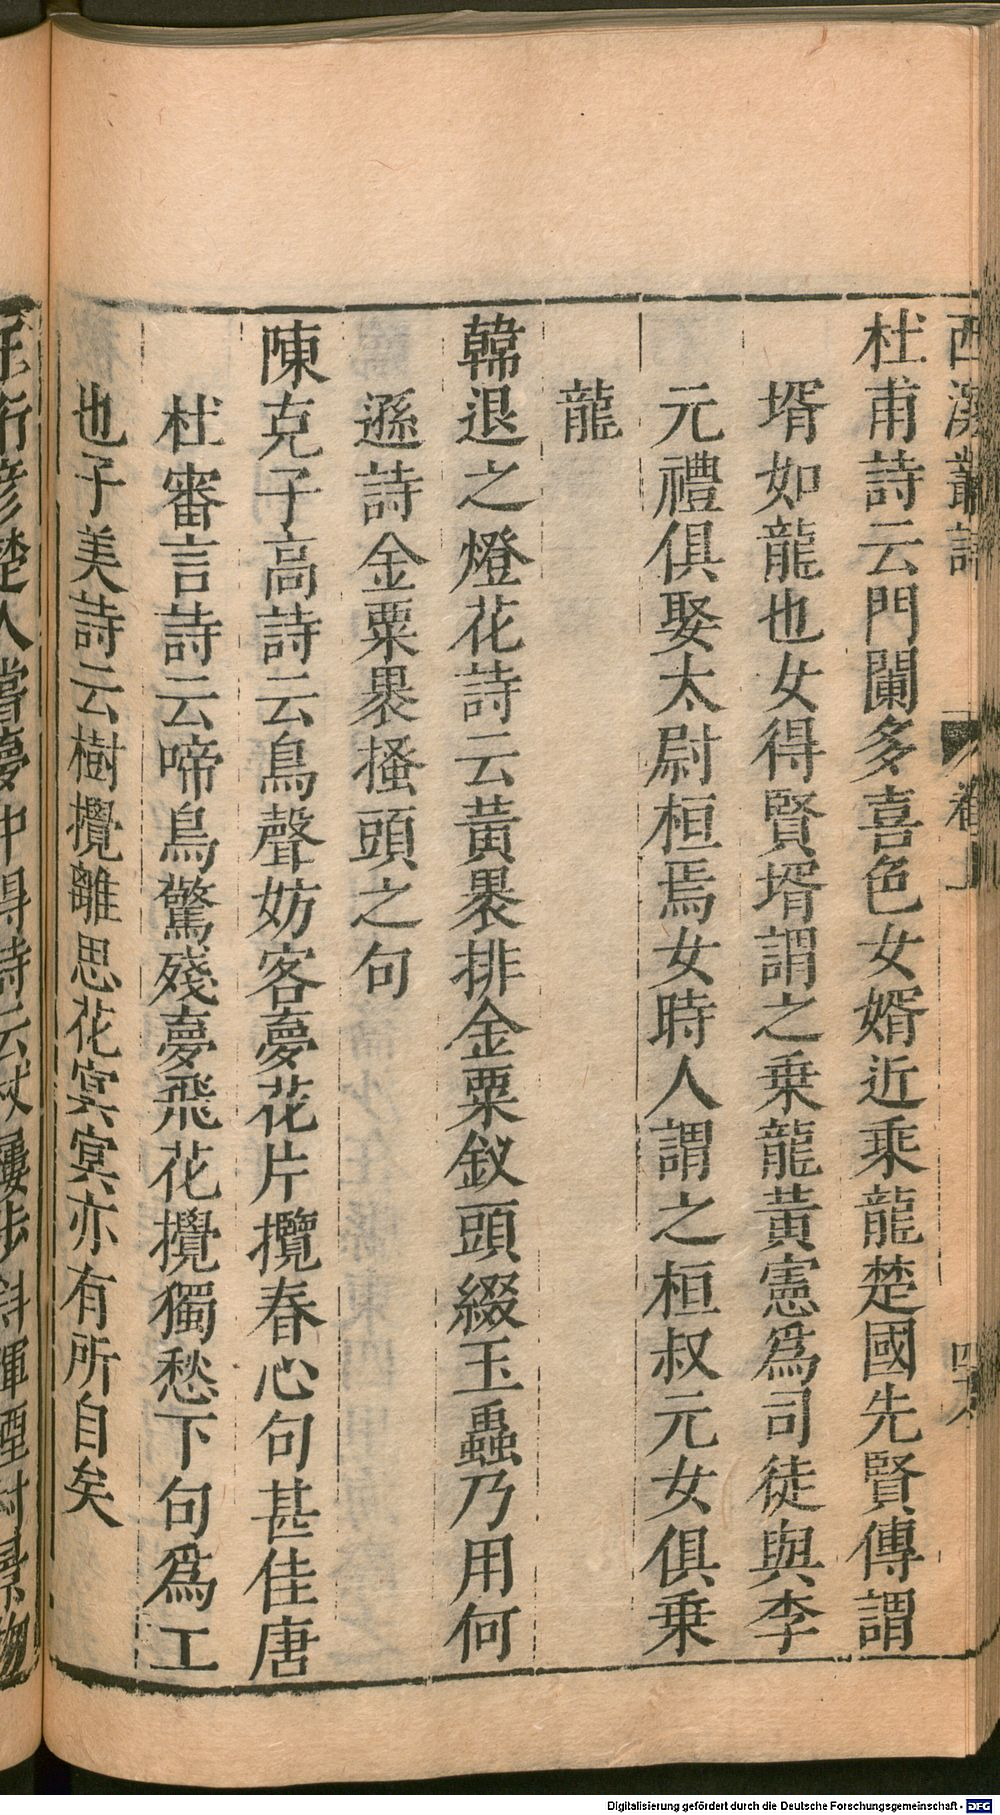 西溪叢語 卷上
杜甫詩云門闌多喜色女婿近乘龍楚國先賢傳謂
壻如龍也女得賢壻謂之乗龍黃憲爲司徒與李
元禮俱娶太尉桓焉女時人謂之桓叔元女俱乗
龍
韓退之燈花詩云黃裏排金粟釵頭綴玉蟲乃用何
遜詩金粟裹搔頭之句
陳克子高詩云鳥聲妨客夢花片攪春心句甚佳唐
杜審言詩云啼鳥驚殘夢飛花攪獨愁下句爲工
也子美詩云樹攪離思花冥冥亦有所自矣
楚人嘗夢中得詩云
Digitalisierung gefördert durch die Deutsche Forschungsgemeinschaft - DFG